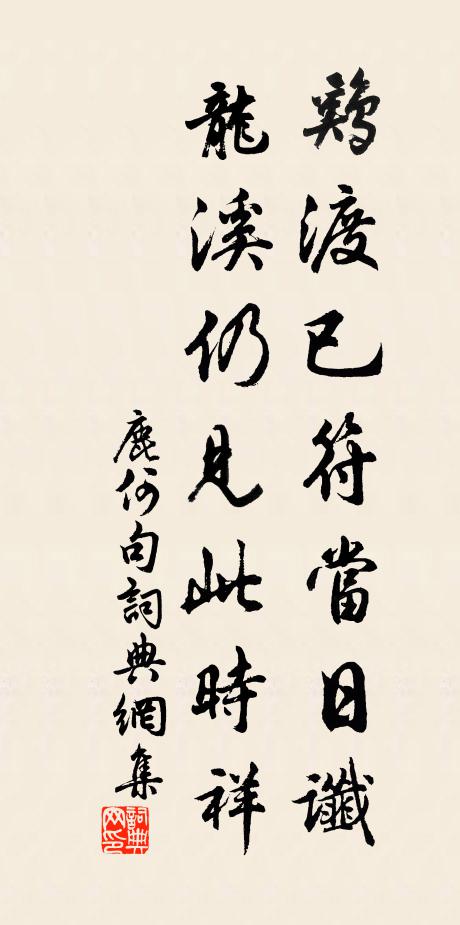 鷄渡已符當日讖
龍溪仍見此時祥
鹿何句詞典網集
詞典網印